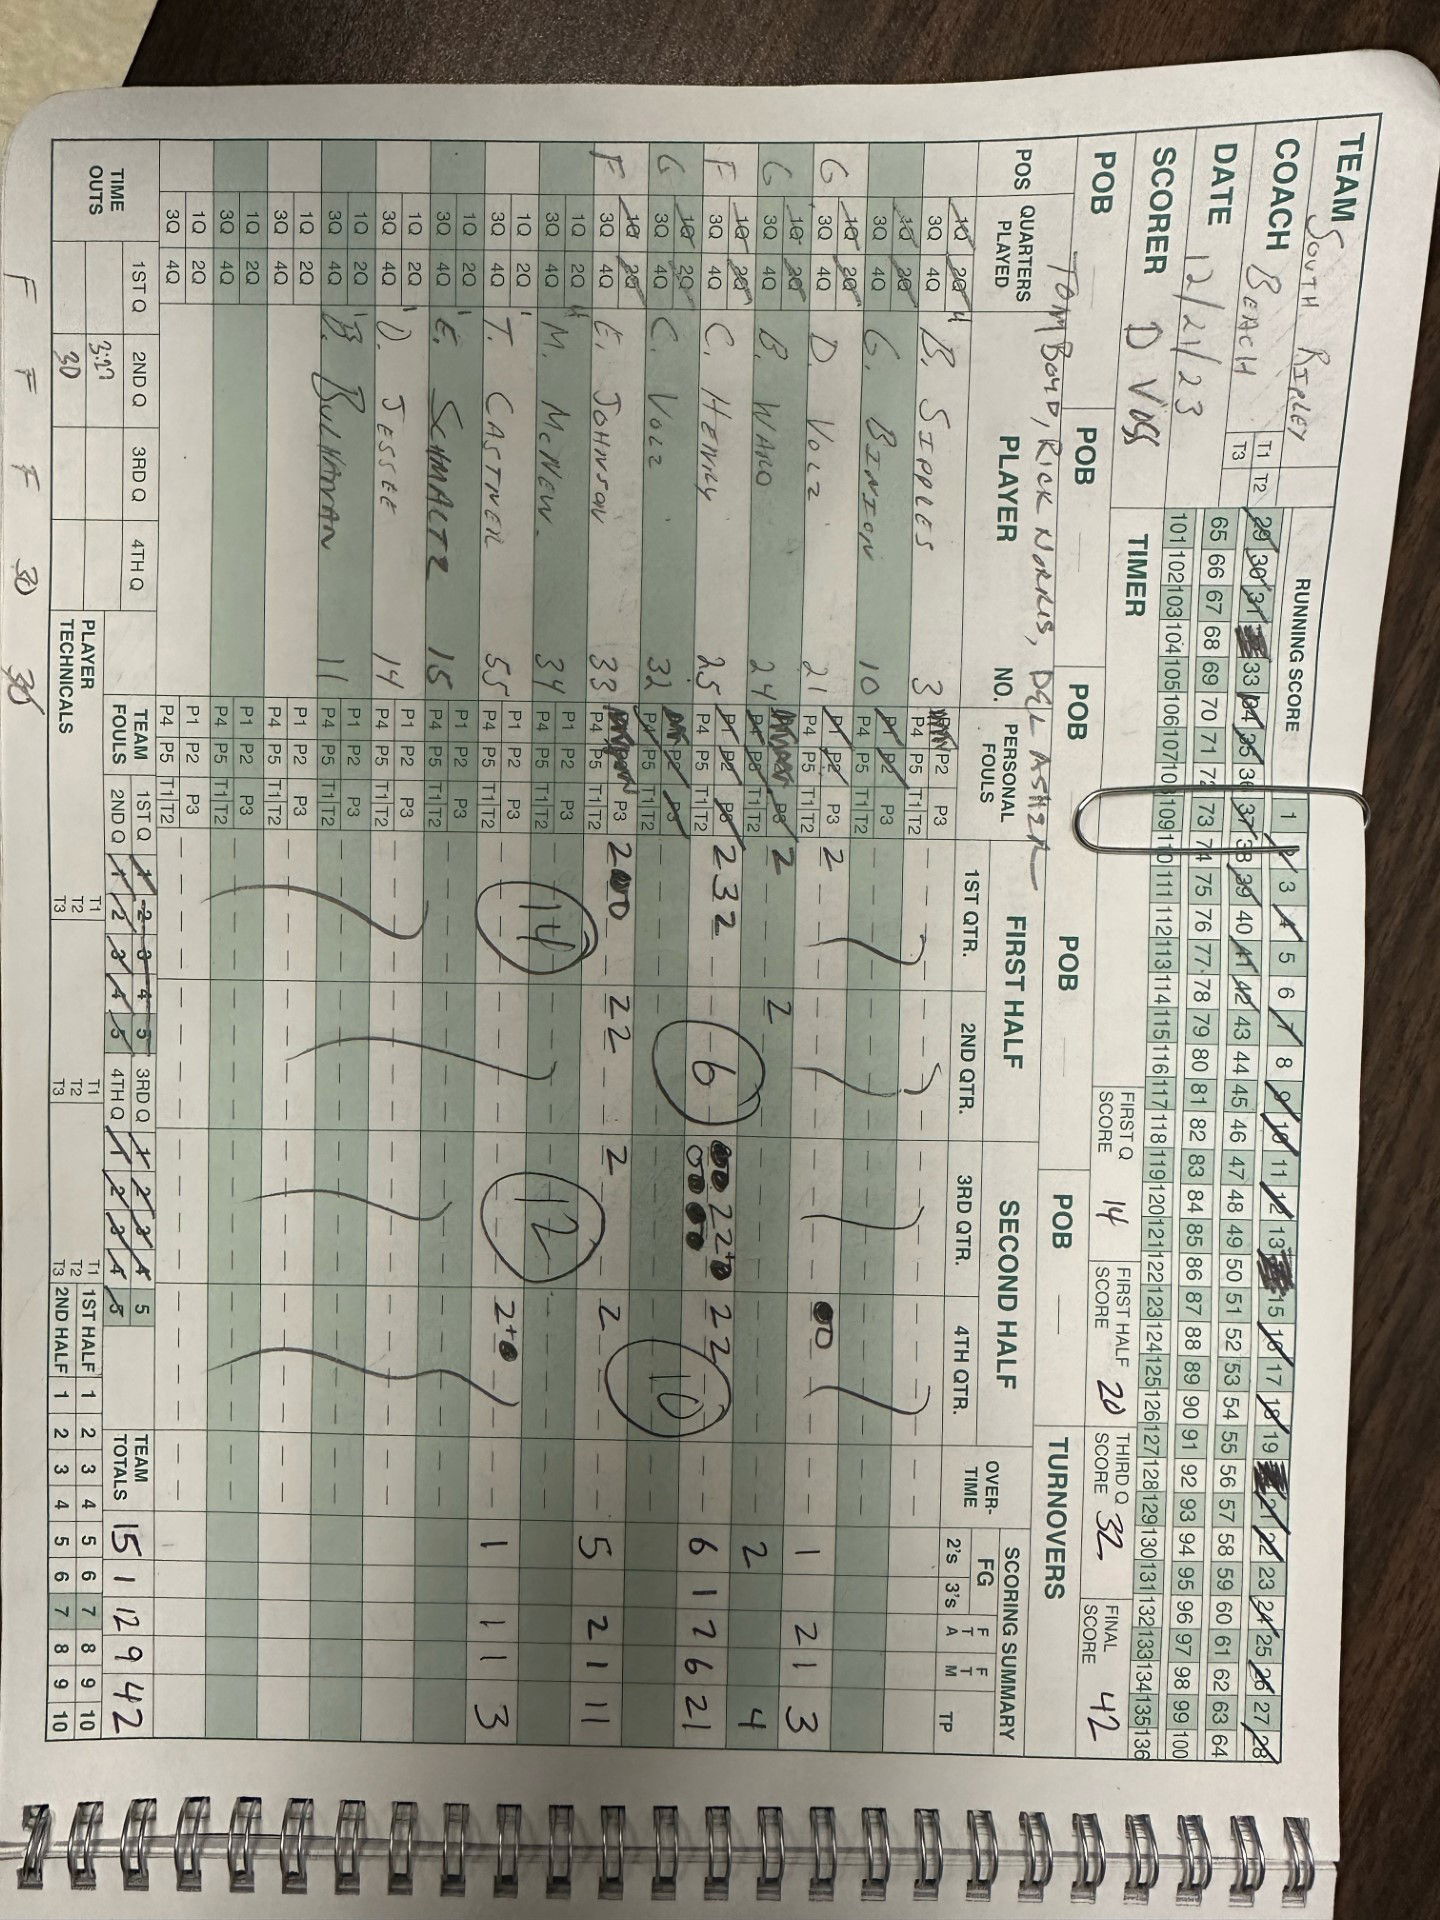 TEAM SOUTH RIPLEY
COACH BEACH
DATE 12/21/23
SCORER D VOSS
TIMER
T1 T2
T3
RUNNING SCORE
1 2 3 4 5 6 7 8 9 10 11 12 13 15 16 17 18 19 21 22 23 24 25 26 27 28
29 30 31 33 34 35 36 37 38 39 40 41 42 43 44 45 46 47 48 49 50 51 52 53 54 55 56 57 58 59 60 61 62 63 64
65 66 67 68 69 70 71 72 73 74 75 76 77 78 79 80 81 82 83 84 85 86 87 88 89 90 91 92 93 94 95 96 97 98 99 100
101 102 103 104 105 106 107 10 109 110 111 112 113 114 115 116 117 118 119 120 121 122 123 124 125 126 127 128 129 130 131 132 133 134 135 136
FIRST Q SCORE 14 FIRST HALF SCORE 20 THIRD Q SCORE 32 FINAL SCORE 42
POB POB POB POB POB TURNOVERS
TOM BOYD, RICK NORRIS, DEL ASHER
POS QUARTERS PLAYED PLAYER NO. PERSONAL FOULS FIRST HALF SECOND HALF OVER-TIME SCORING SUMMARY
1ST QTR. 2ND QTR. 3RD QTR. 4TH QTR. FG 2's 3's FTA FTM TP
1Q 2Q 3Q 4Q B. SIPPLES 3 P2 P3 P4 P5 T1 T2
1Q 2Q 3Q 4Q G. BINION 10 P1 P2 P3 P4 P5 T1 T2
G 1Q 2Q 3Q 4Q D. VOLZ 21 P1 P2 P3 P4 P5 T1 T2 2 0 1 2 1 3
G 1Q 2Q 3Q 4Q B. WARD 24 P3 P4 P5 T1 T2 2 2 2 4
F 1Q 2Q 3Q 4Q C. HENRY 25 P1 P2 P3 P4 P5 T1 T2 2 3 2 6 2 2 2 2 6 1 7 6 21
G 1Q 2Q 3Q 4Q C. VOLZ 32 P2 P3 P4 P5 T1 T2
F 1Q 2Q 3Q 4Q E. JOHNSON 33 P3 P4 P5 T1 T2 2 0 2 2 2 2 10 5 2 1 11
1Q 2Q 3Q 4Q M. McNEW 34 P1 P2 P3 P4 P5 T1 T2 14 12
1Q 2Q 3Q 4Q T. CASTNER 55 P1 P2 P3 P4 P5 T1 T2 2+ 1 1 1 3
1Q 2Q 3Q 4Q E. SCHMALTZ 15 P1 P2 P3 P4 P5 T1 T2
1Q 2Q 3Q 4Q D. JESSEE 14 P1 P2 P3 P4 P5 T1 T2
1Q 2Q 3Q 4Q B. BULTHMAN 11 P1 P2 P3 P4 P5 T1 T2
1Q 2Q 3Q 4Q P1 P2 P3 P4 P5 T1 T2
1Q 2Q 3Q 4Q P1 P2 P3 P4 P5 T1 T2
1Q 2Q 3Q 4Q P1 P2 P3 P4 P5 T1 T2
TIME OUTS 1ST Q 2ND Q 3RD Q 4TH Q
3:29
30
TEAM FOULS 1ST Q 1 2 3 4 5 3RD Q 1 2 3 4 5
2ND Q 1 2 3 4 5 4TH Q 1 2 3 4 5
TEAM TOTALS 15 1 12 9 42
PLAYER TECHNICALS T1 T2 T3 T1 T2 T3 T1 T2 T3
1ST HALF 1 2 3 4 5 6 7 8 9 10
2ND HALF 1 2 3 4 5 6 7 8 9 10
F F F 30 30